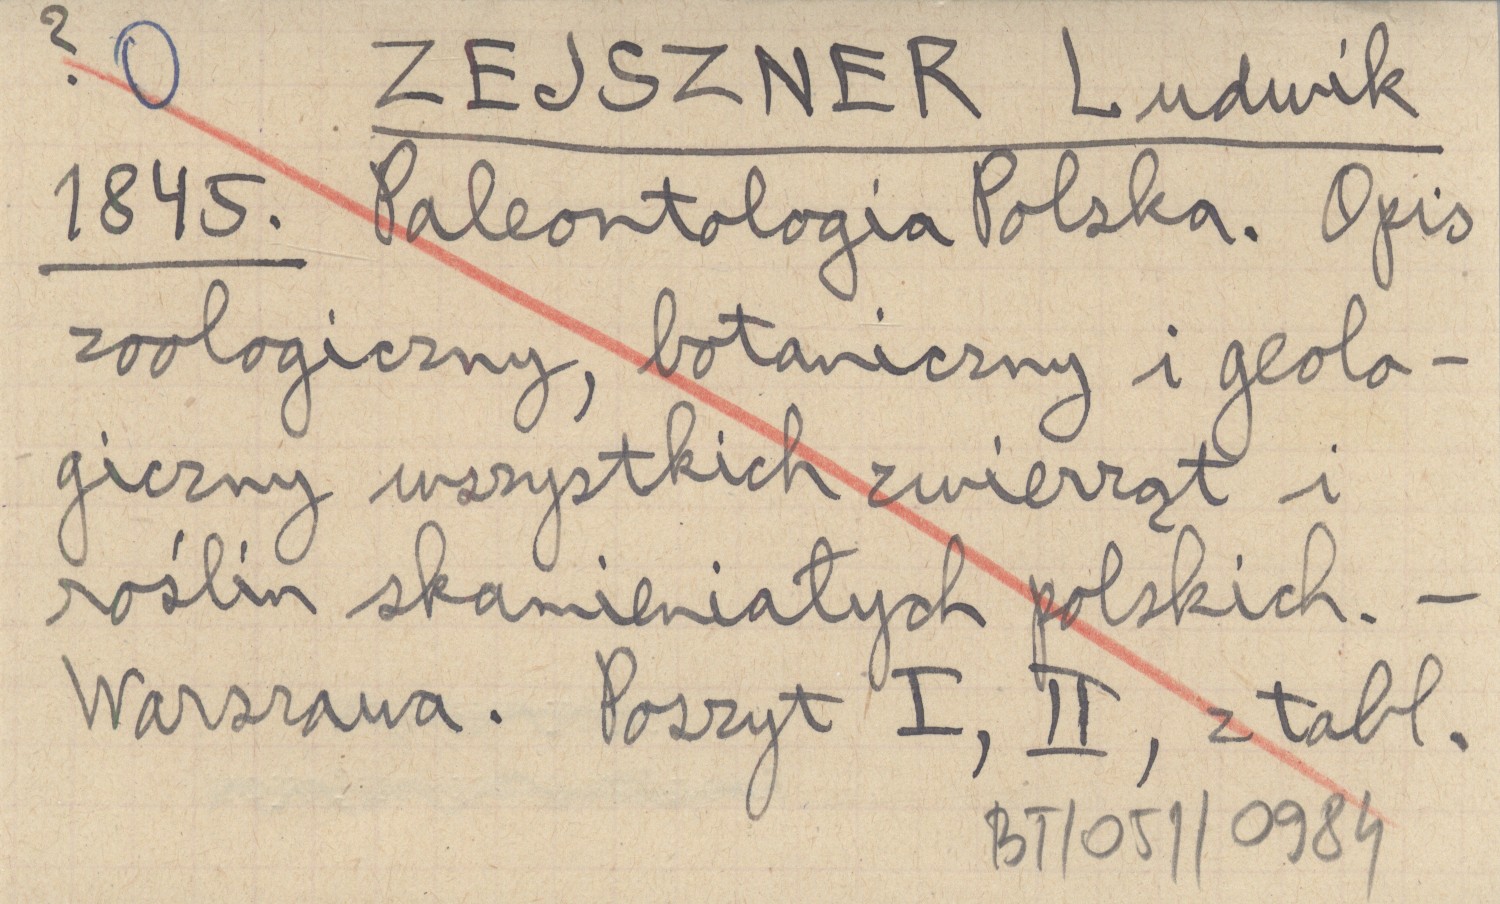 ? O ZEJSZNER Ludwik
1845. Paleontologia Polska. Opis
zoologiczny, botaniczny i geolo-
giczny wszystkich zwierząt i
roślin skamieniałych polskich. —
Warszawa. Poszyt I, II, z tabl.
BT/051/0984